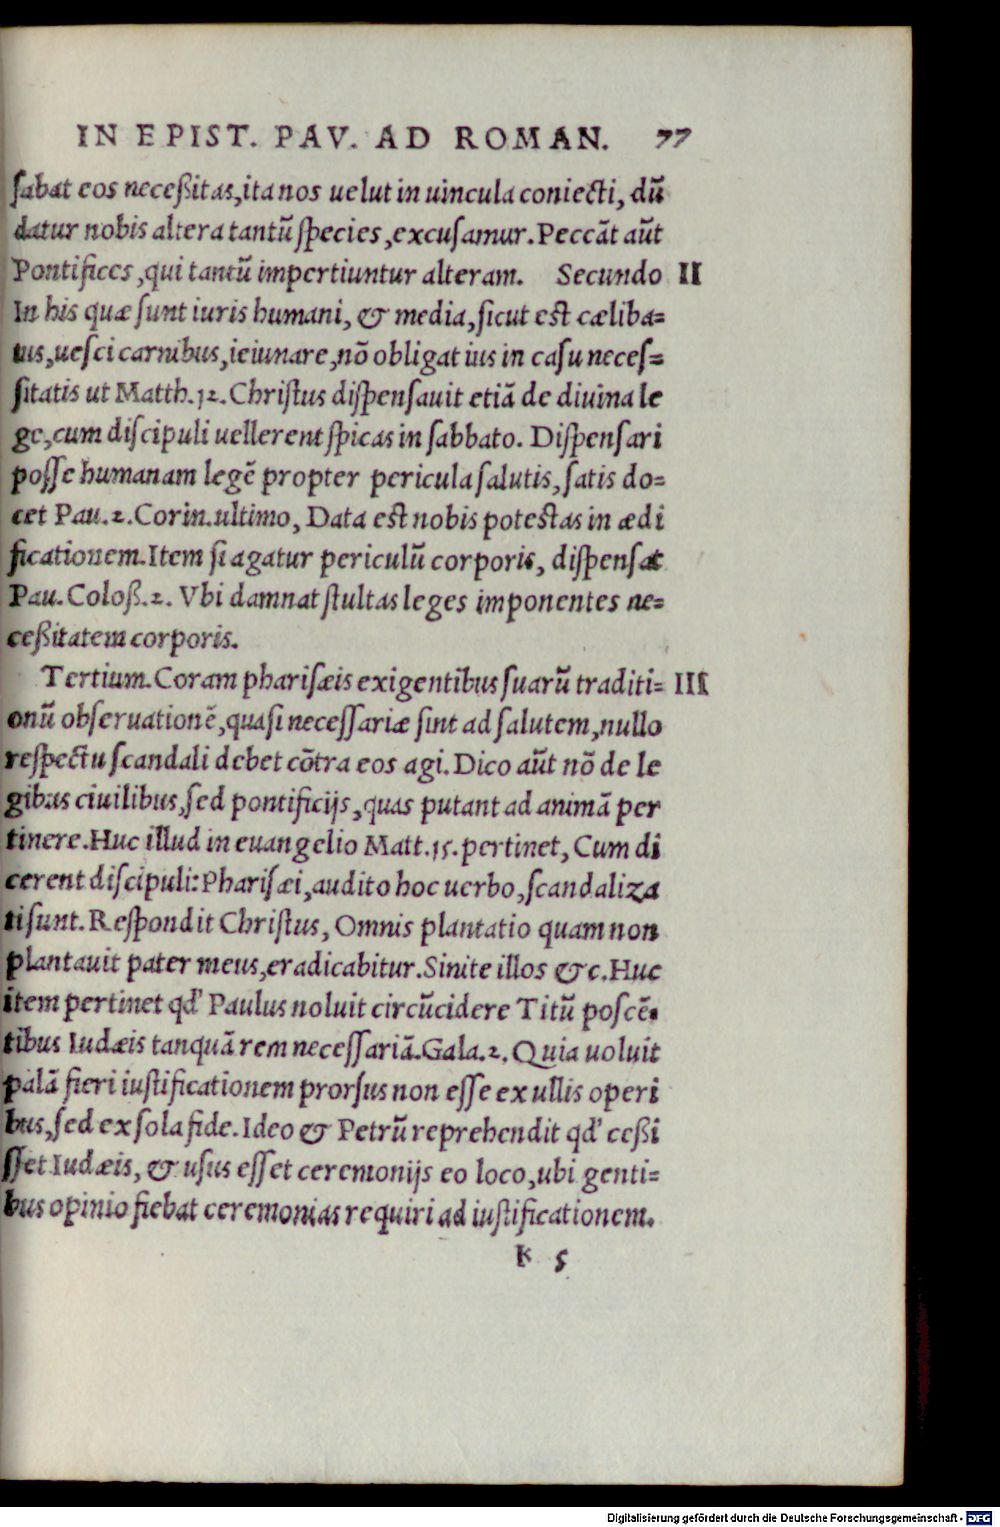 IN EPIST. PAV. AD ROMAN. 77
sabat eos neceßitas, ita nos uelut in uincula coniecti, dū
datur nobis altera tantū species, excusamur. Peccāt aūt
Pontifices, qui tantū impertiuntur alteram. Secundo II
In his quæ sunt iuris humani, & media, sicut est cæliba=
tus, uesci carnibus, ieiunare, nō obligat ius in casu neces=
sitatis ut Matth. 12. Christus dispensauit etiā de diuina le
ge, cum discipuli uellerent spicas in sabbato. Dispensari
posse humanam legē propter pericula salutis, satis do=
cet Pau. 2. Corin. ultimo, Data est nobis potestas in ædi
ficationem. Item si agatur periculū corporis, dispensat
Pau. Coloß. 2. Vbi damnat stultas leges imponentes ne=
ceßitatem corporis.
Tertium. Coram pharisæis exigentibus suarū traditi= III
onū obseruationē, quasi necessariæ sint ad salutem, nullo
respectu scandali debet cōtra eos agi. Dico aūt nō de le
gibus ciuilibus, sed pontificijs, quas putant ad animā per
tinere. Huc illud in euangelio Matt. 15. pertinet, Cum di
cerent discipuli: Pharisæi, audito hoc uerbo, scandaliza
ti sunt. Respondit Christus, Omnis plantatio quam non
plantauit pater meus, eradicabitur. Sinite illos &c. Huc
item pertinet qd' Paulus noluit circūcidere Titū poscē=
tibus Iudæis tanquā rem necessariā. Gala. 2. Quia uoluit
palā fieri iustificationem prorsus non esse ex ullis operi
bus, sed ex sola fide. Ideo & Petrū reprehendit qd' ceßi
sset Iudæis, & usus esset ceremonijs eo loco, ubi genti=
bus opinio fiebat ceremonias requiri ad iustificationem.
k 5
Digitalisierung gefördert durch die Deutsche Forschungsgemeinschaft - DFG